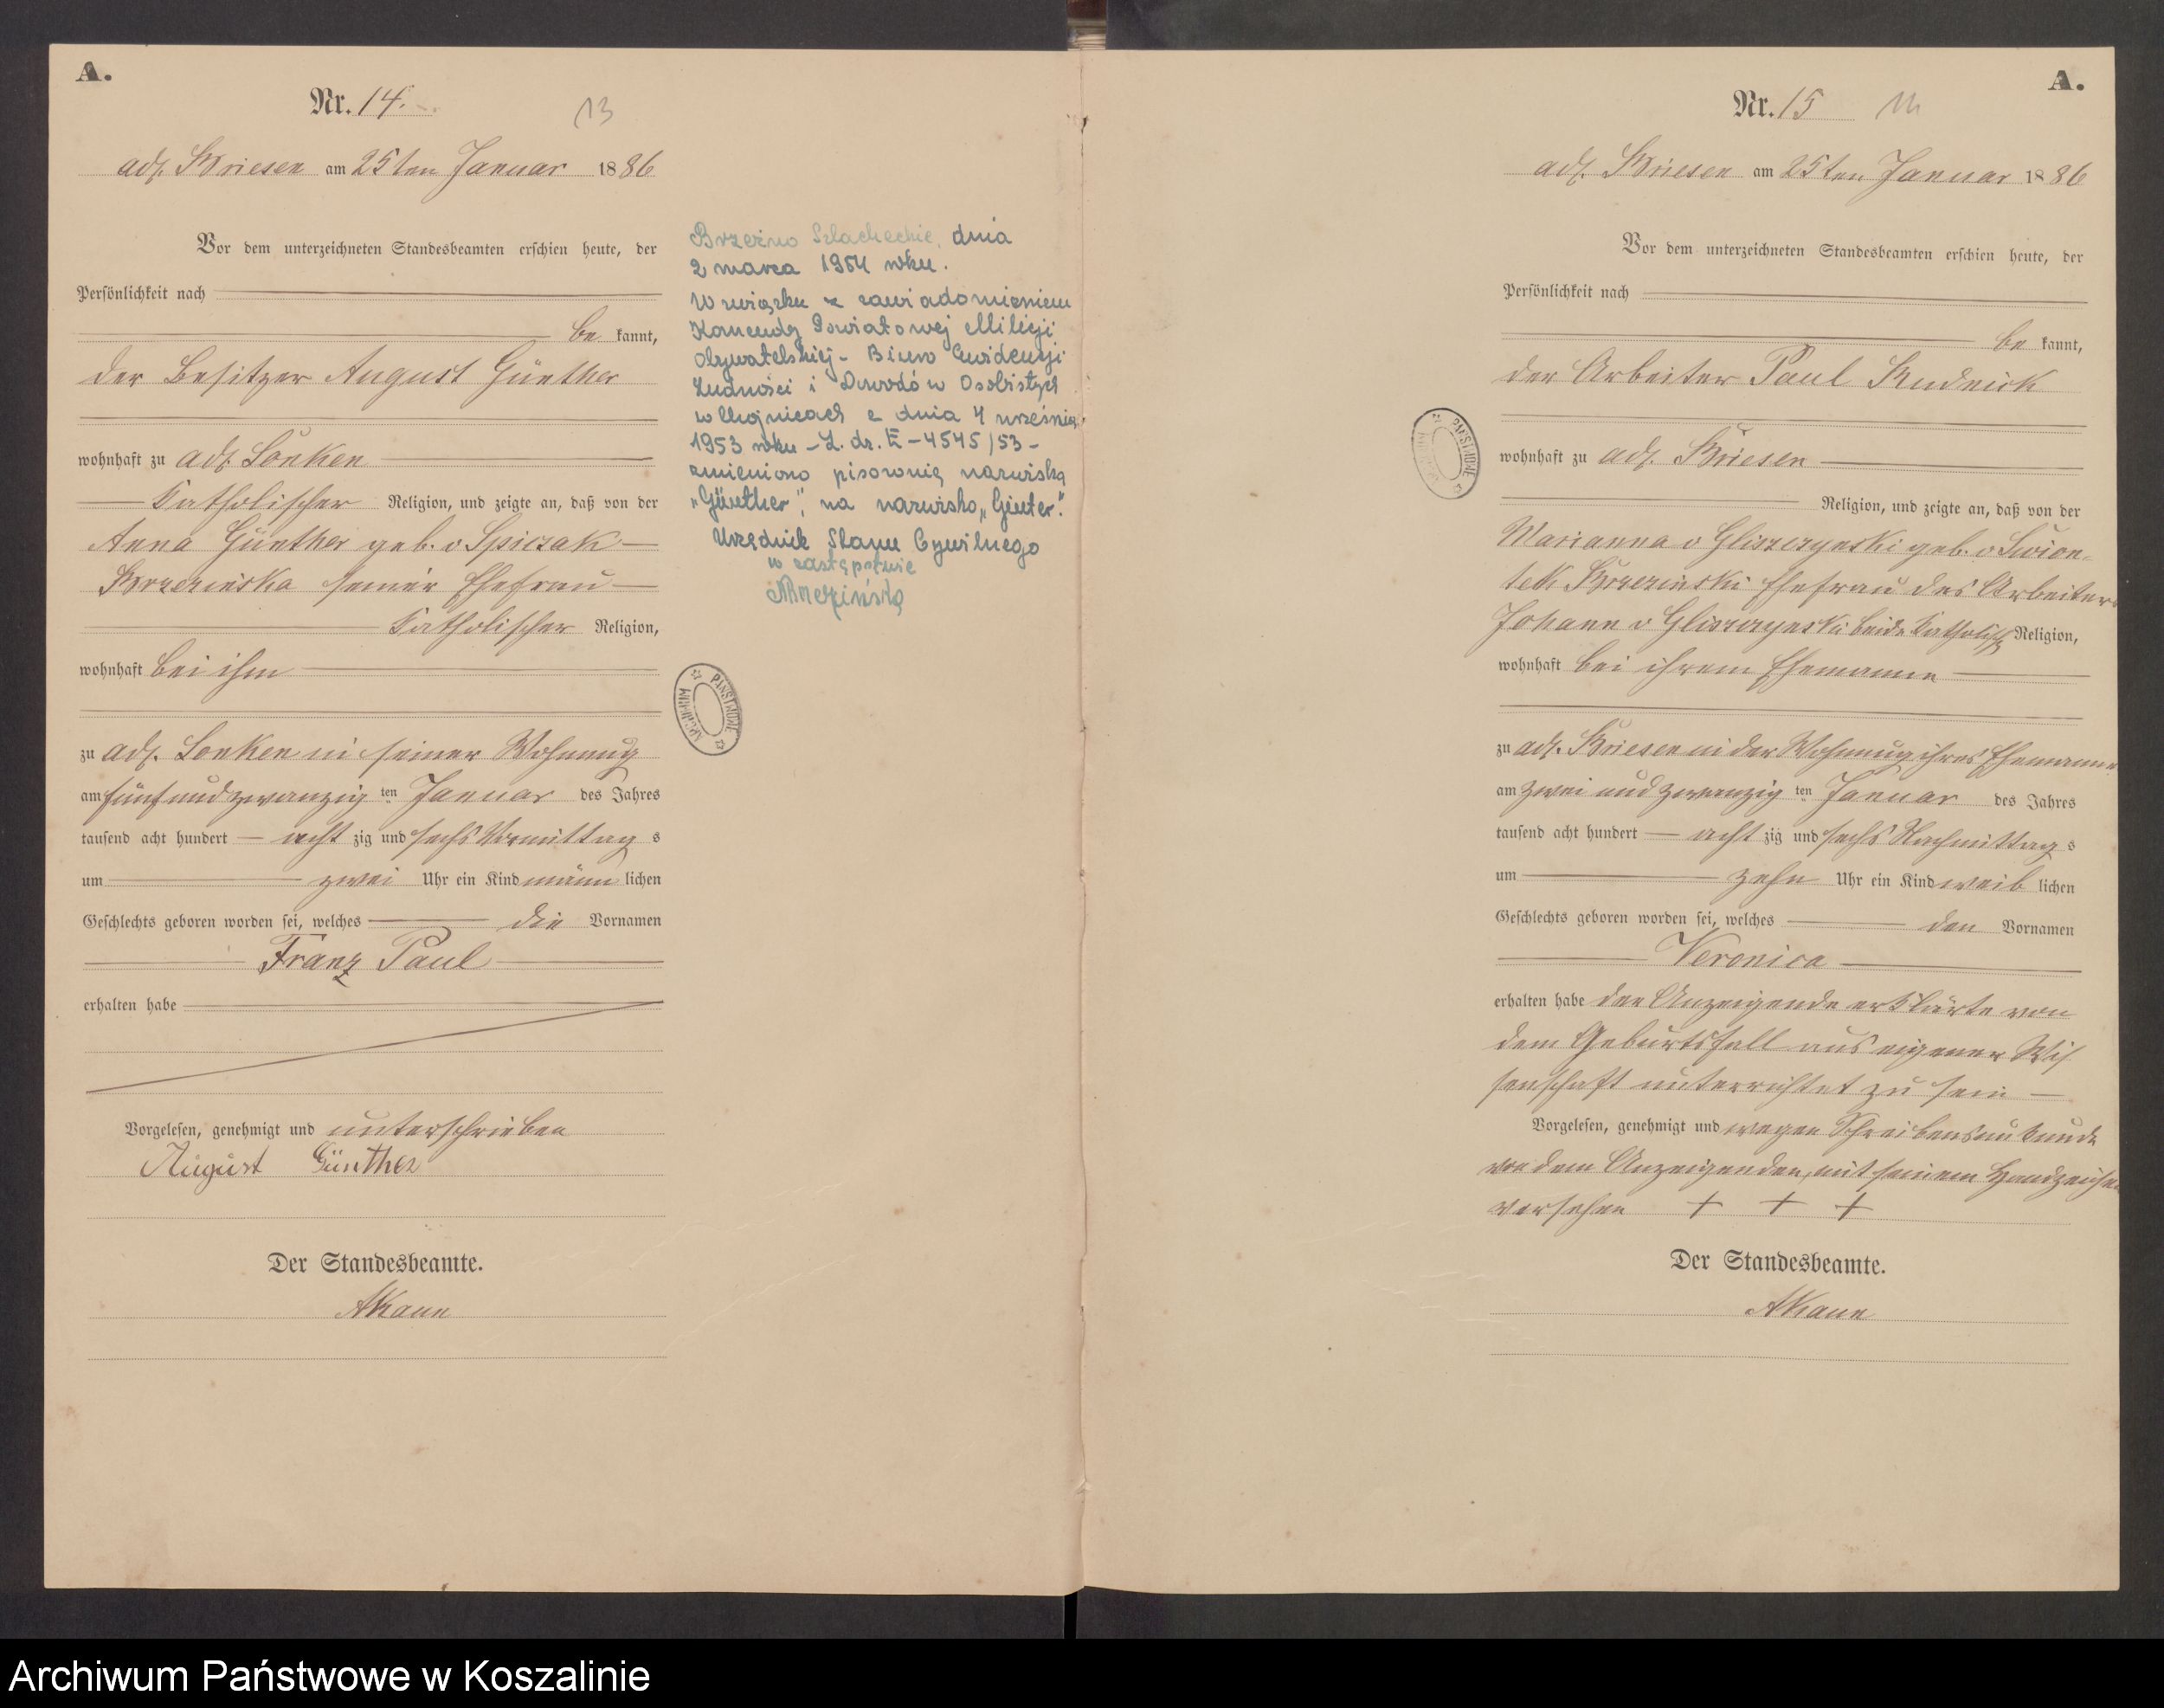 A.
Nr. 14.
13
adl. Briesen am 25ten Januar 1886
Vor dem unterzeichneten Standesbeamten erschien heute, der
Persönlichkeit nach
be kannt,
der Besitzer August Günther
wohnhaft zu adl. Lonken
katholischer Religion, und zeigte an, daß von der
Anna Günther geb. v Spiczak
Brzezinska seiner Ehefrau
katholischer Religion,
wohnhaft bei ihm
zu adl. Lonken in seiner Wohnung
am fünf und zwanzig ten Januar des Jahres
tausend acht hundert acht zig und sechs Vormittag s
um zwei Uhr ein Kind männ lichen
Geschlechts geboren worden sei, welches die Vornamen
Franz Paul
erhalten habe
Vorgelesen, genehmigt und unterschrieben
August Günther
Der Standesbeamte.
AKaun
Brzeźno Szlacheckie, dnia
2 marca 1954 roku.
W związku z zawiadomieniem
Komendy Powiatowej Milicji
Obywatelskiej - Biuro Ewidencji
Ludności i Dowodów Osobistych
w Chojnicach z dnia 4 września
1953 roku - L. dz. E - 4545/53 -
zmieniono pisownię nazwiska
„Günther", na nazwisko „Ginter".
Urzędnik Stanu Cywilnego
w zastępstwie
ARCHIWUM PAŃSTWOWE
A.
Nr. 15
14
adl. Briesen am 25ten Januar 1886
Vor dem unterzeichneten Standesbeamten erschien heute, der
Persönlichkeit nach
be kannt,
der Arbeiter Paul Rudnick
wohnhaft zu adl. Briesen
Religion, und zeigte an, daß von der
Marianna v Gliszczynski geb. v Swion-
tek Brzezinski Ehefrau des Arbeiters
Johann v Gliszczynski beide katholisch Religion,
wohnhaft bei ihrem Ehemanne
zu adl. Briesen in der Wohnung ihres Ehemannes
am zwei und zwanzig ten Januar des Jahres
tausend acht hundert acht zig und sechs Nachmittag s
um zehn Uhr ein Kind weib lichen
Geschlechts geboren worden sei, welches den Vornamen
Veronica
erhalten habe der Anzeigende erklärte von
dem Geburtsfall aus eigener Wis
senschaft unterrichtet zu sein
Vorgelesen, genehmigt und wegen Schreibensunkunde
von dem Anzeigenden, mit seinem Handzeichen
versehen + + +
Der Standesbeamte.
AKaun
PAŃSTWOWE
Archiwum Państwowe w Koszalinie